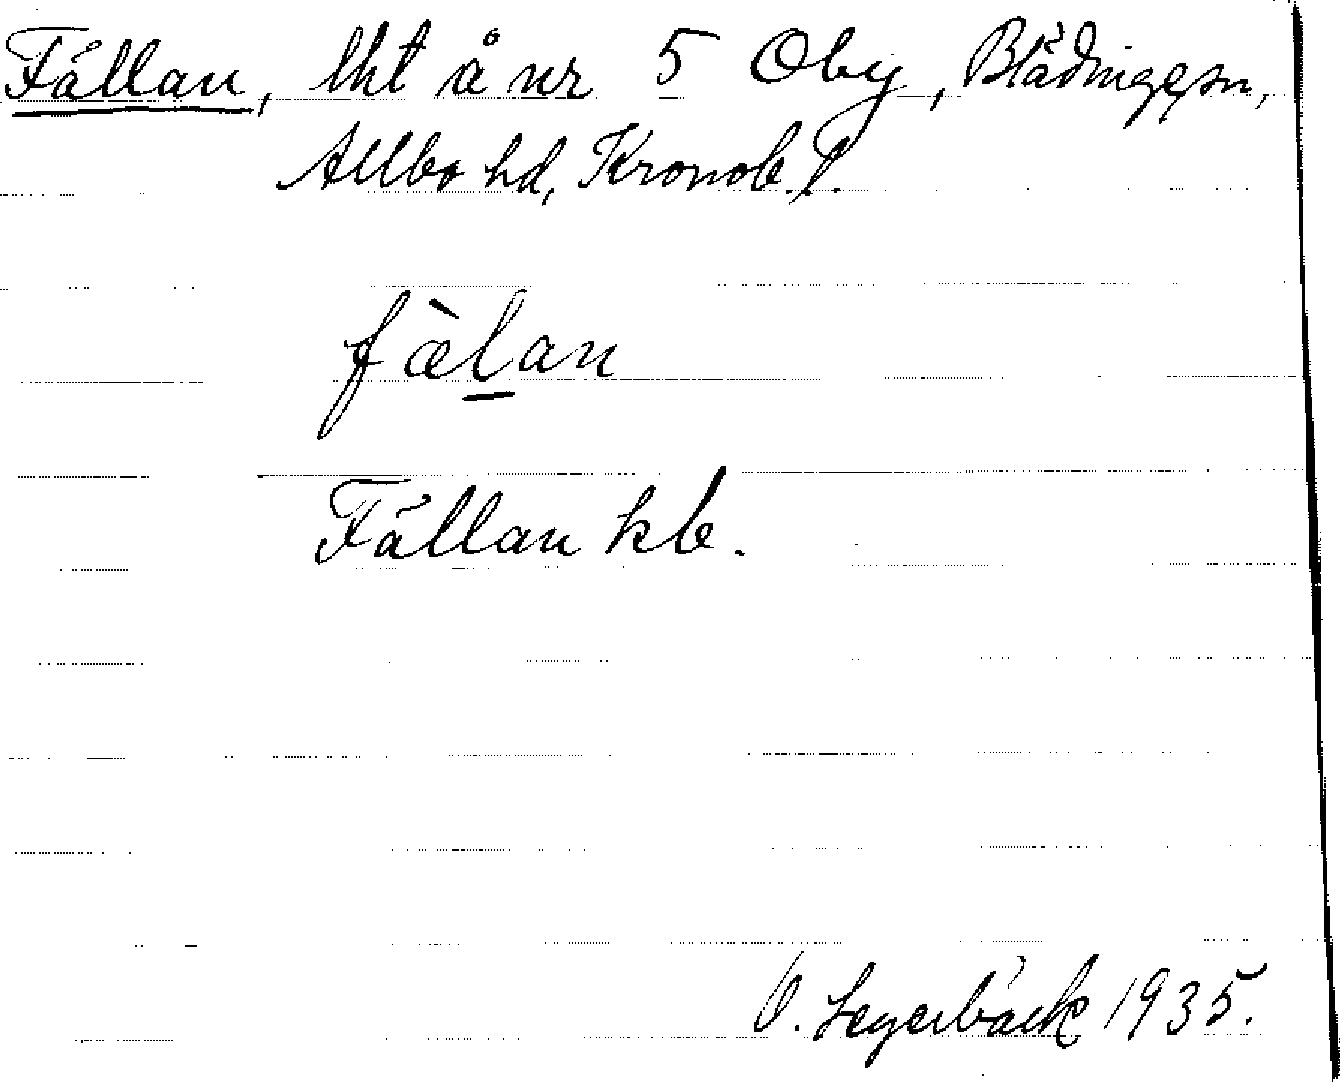 Fällan, lht å nr 5 Oby, Blädinge sn,
Allbo hd, Kronob. l.
fæ̀l̲an
Fällan kb.
O. Segerbäck 1935.